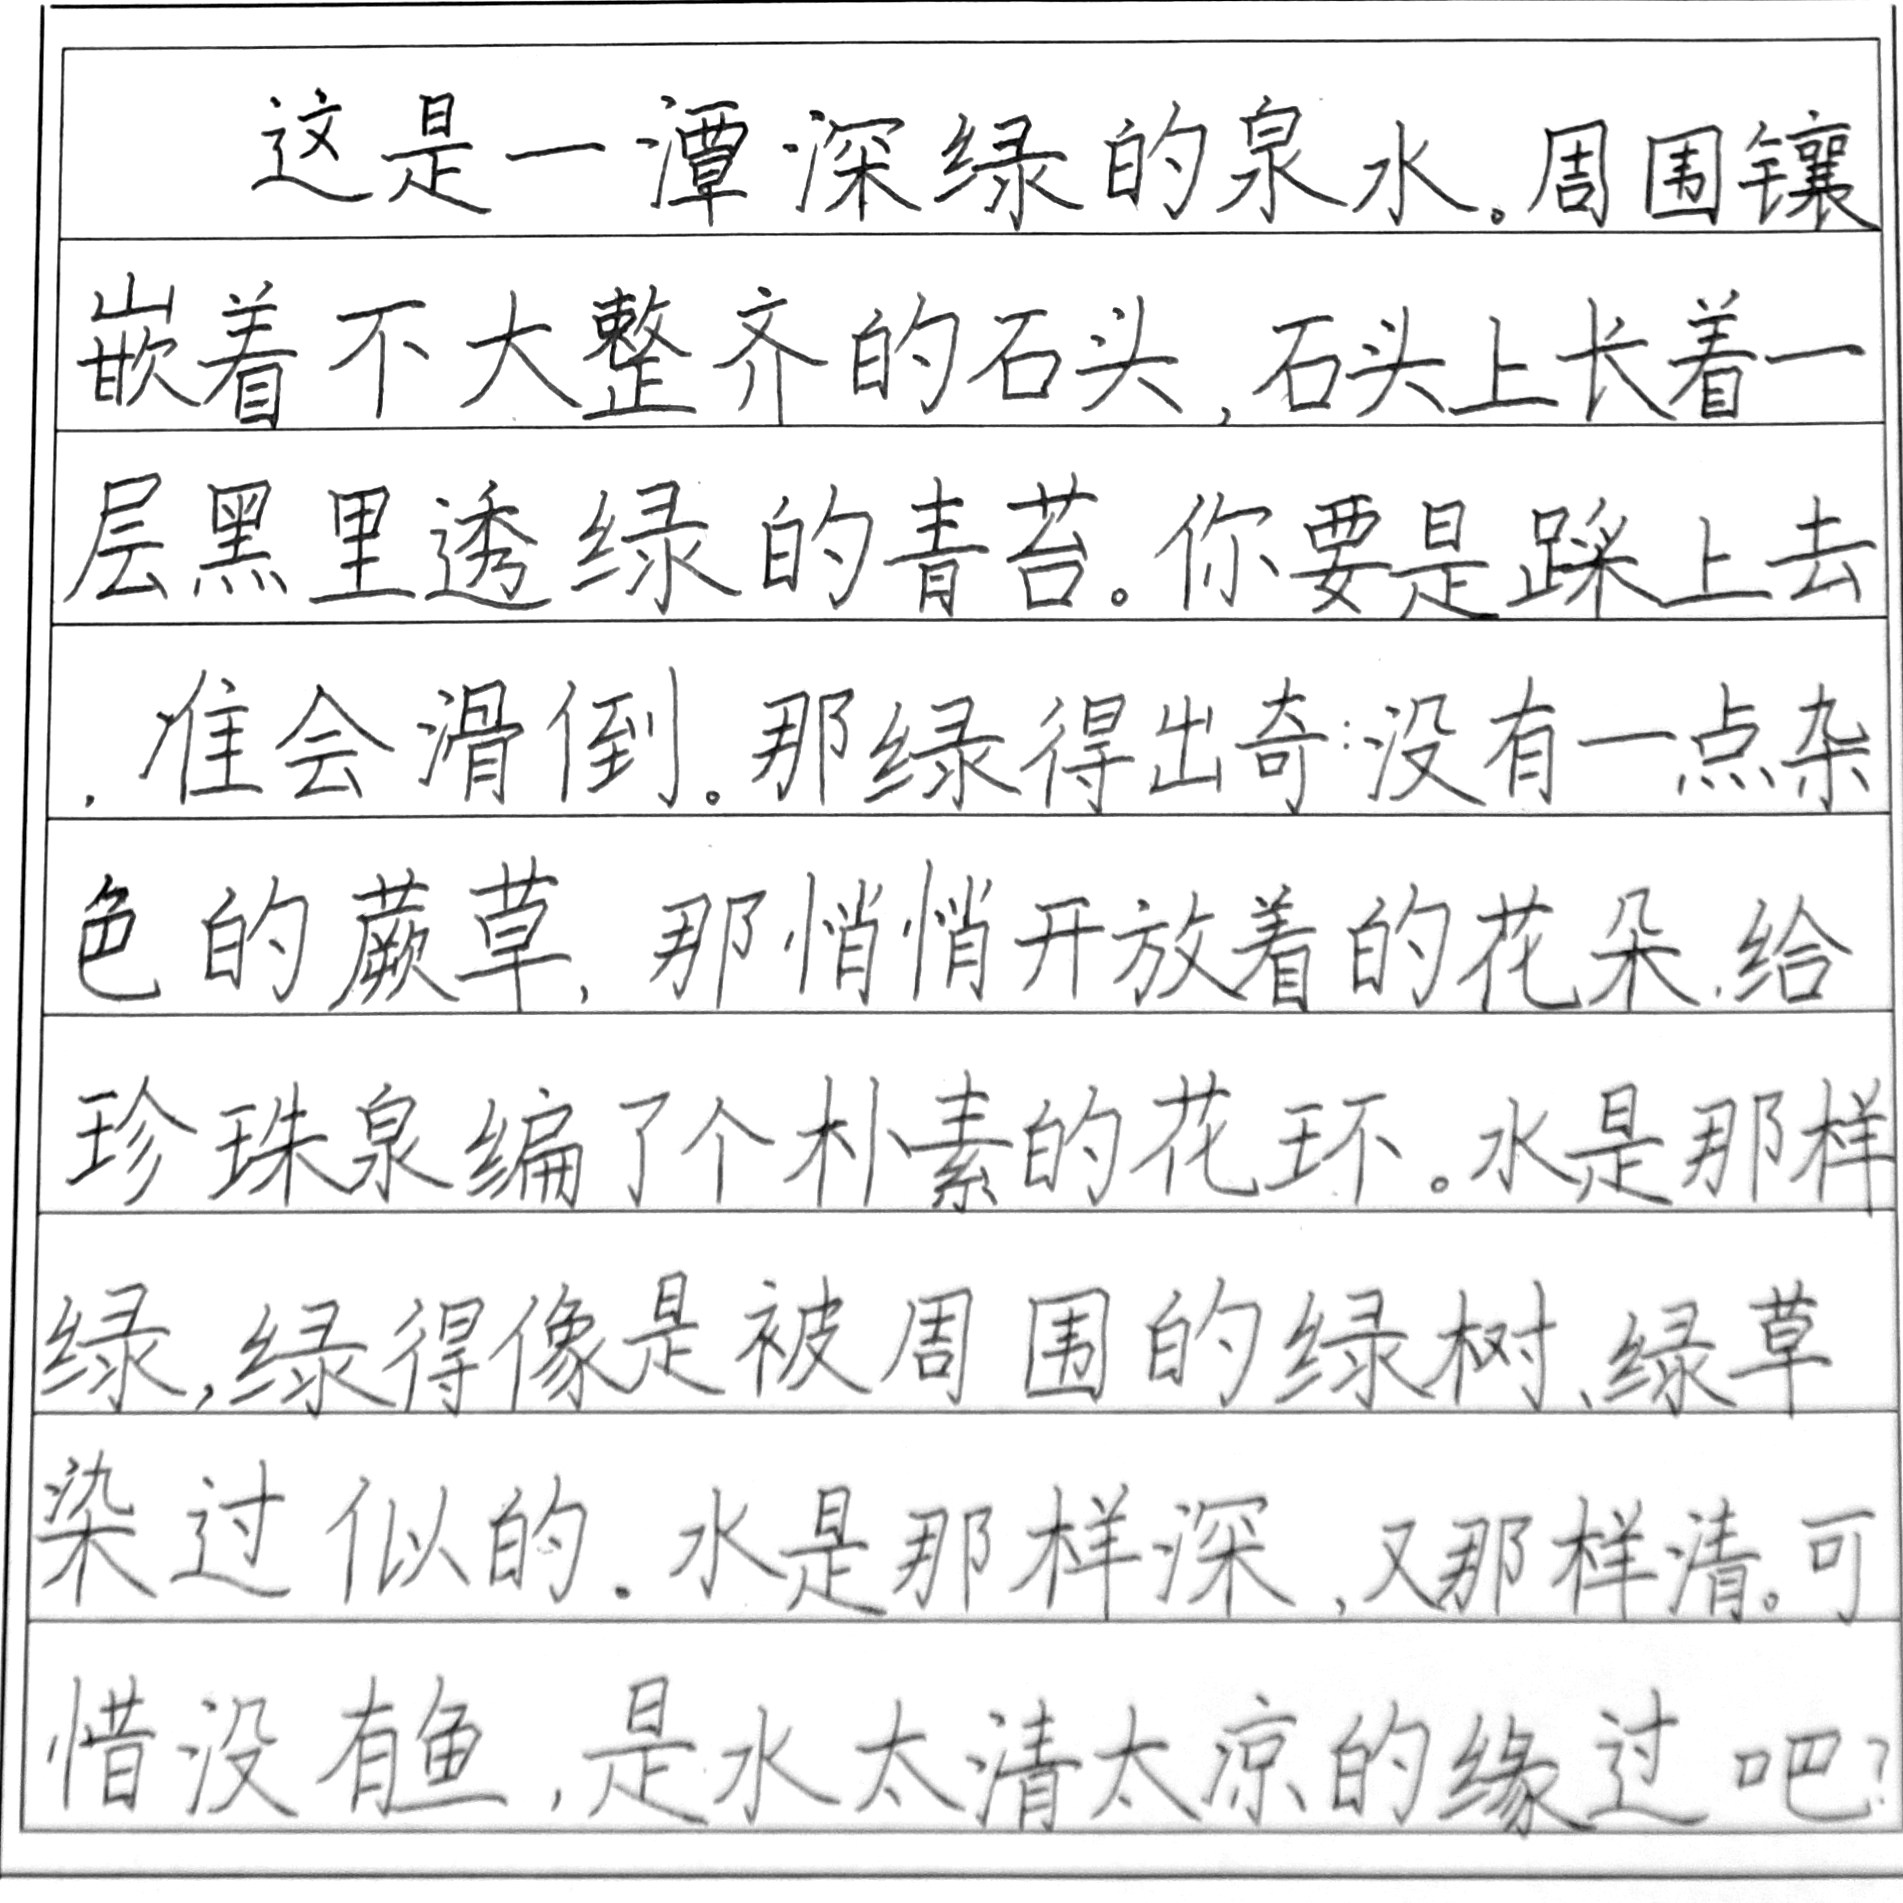 这是一潭深绿的泉水。周围镶
嵌着不大整齐的石头,石头上长着一
层黑里透绿的青苔。你要是踩上去
,准会滑倒。那绿得出奇:没有一点杂
色的蕨草,那悄悄开放着的花朵,给
珍珠泉编了个朴素的花环。水是那样
绿,绿得像是被周围的绿树、绿草
染过似的。水是那样深,又那样清。可
惜没有鱼,是水太清太凉的缘过吧?